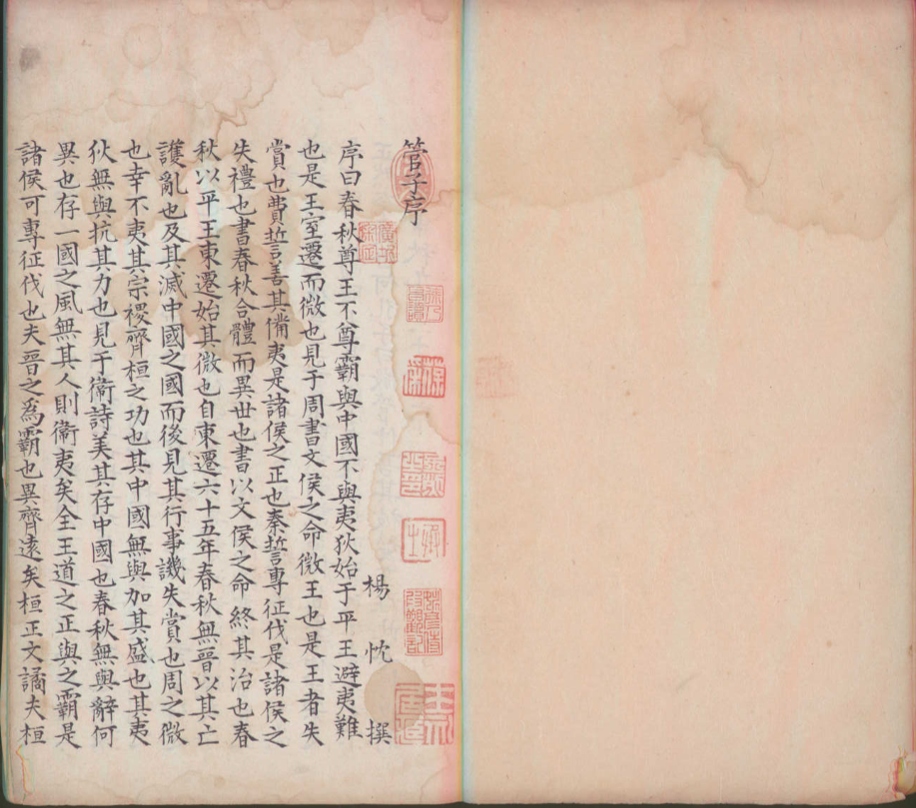 管子序
楊忱撰
序曰春秋尊王不尊霸與中國不與夷狄始于平王避夷難
也是王室遷而微也見于周書文侯之命微王也是王者失
賞也費誓善其備夷是諸侯之正也秦誓專征伐是諸侯之
失禮也書春秋合體而異世也書以文侯之命終其治也春
秋以平王東遷始其微也自東遷六十五年春秋無晉以其亡
護亂也及其滅中國之國而後見其行事譏失賞也周之微
也幸不夷其宗稷齊桓之功也其中國無與加其盛也其夷
狄無與抗其力也見于衛詩美其存中國也春秋無與辭何
異也存一國之風無其人則衛夷矣全王道之正與之霸是
諸侯可專征伐也夫晉之為霸也異齊遠矣桓正文譎夫桓